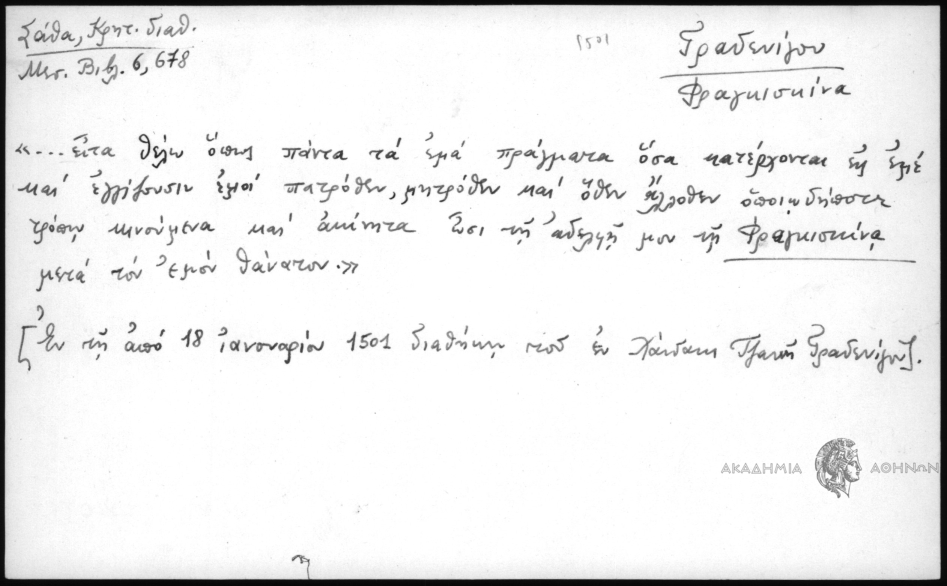 Σάθα, Κρητ. διαθ.
Μεσ. Βιβλ. 6, 678
1501
Γραδενίγου
Φραγκισκίνα
«... εἶτα θέλω ὅπως πάντα τά ἐμά πράγματα ὅσα κατέρχονται εἰς ἐμέ
καί ἐγγίζουσιν ἐμοί πατρόθεν, μητρόθεν καί ὅθεν ἄλλοθεν ὁποιῳδήποτε
τρόπῳ κινούμενα καί ἀκίνητα ὦσι τῇ ἀδελφῇ μου τῇ Φραγκισκίνᾳ
μετά τόν ἐμόν θάνατον.»
[Ἐν τῇ ἀπό 18 ἰανουαρίου 1501 διαθήκῃ τοῦ ἐν Χάνδακι Τζανῆ Γραδενίγου].
ΑΚΑΔΗΜΙΑ ΑΘΗΝΩΝ